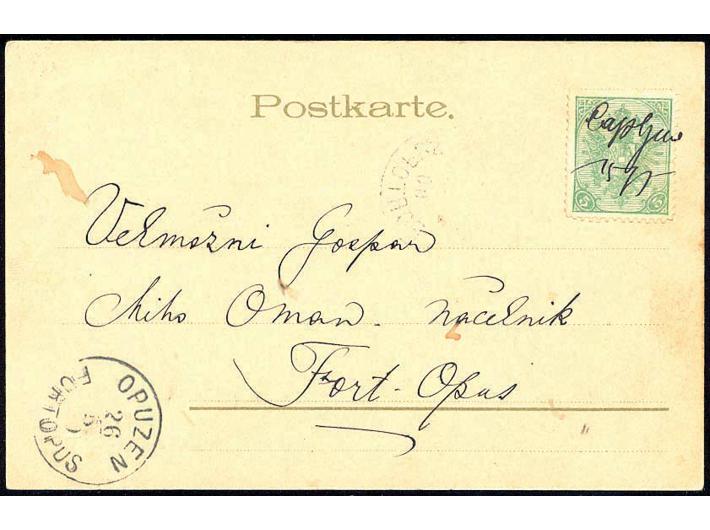 Postkarte.
Velmožni Gospar
Miho Oman. načelnik
Fort-Opus
OPUZEN
26
FORTOPUS
5 5